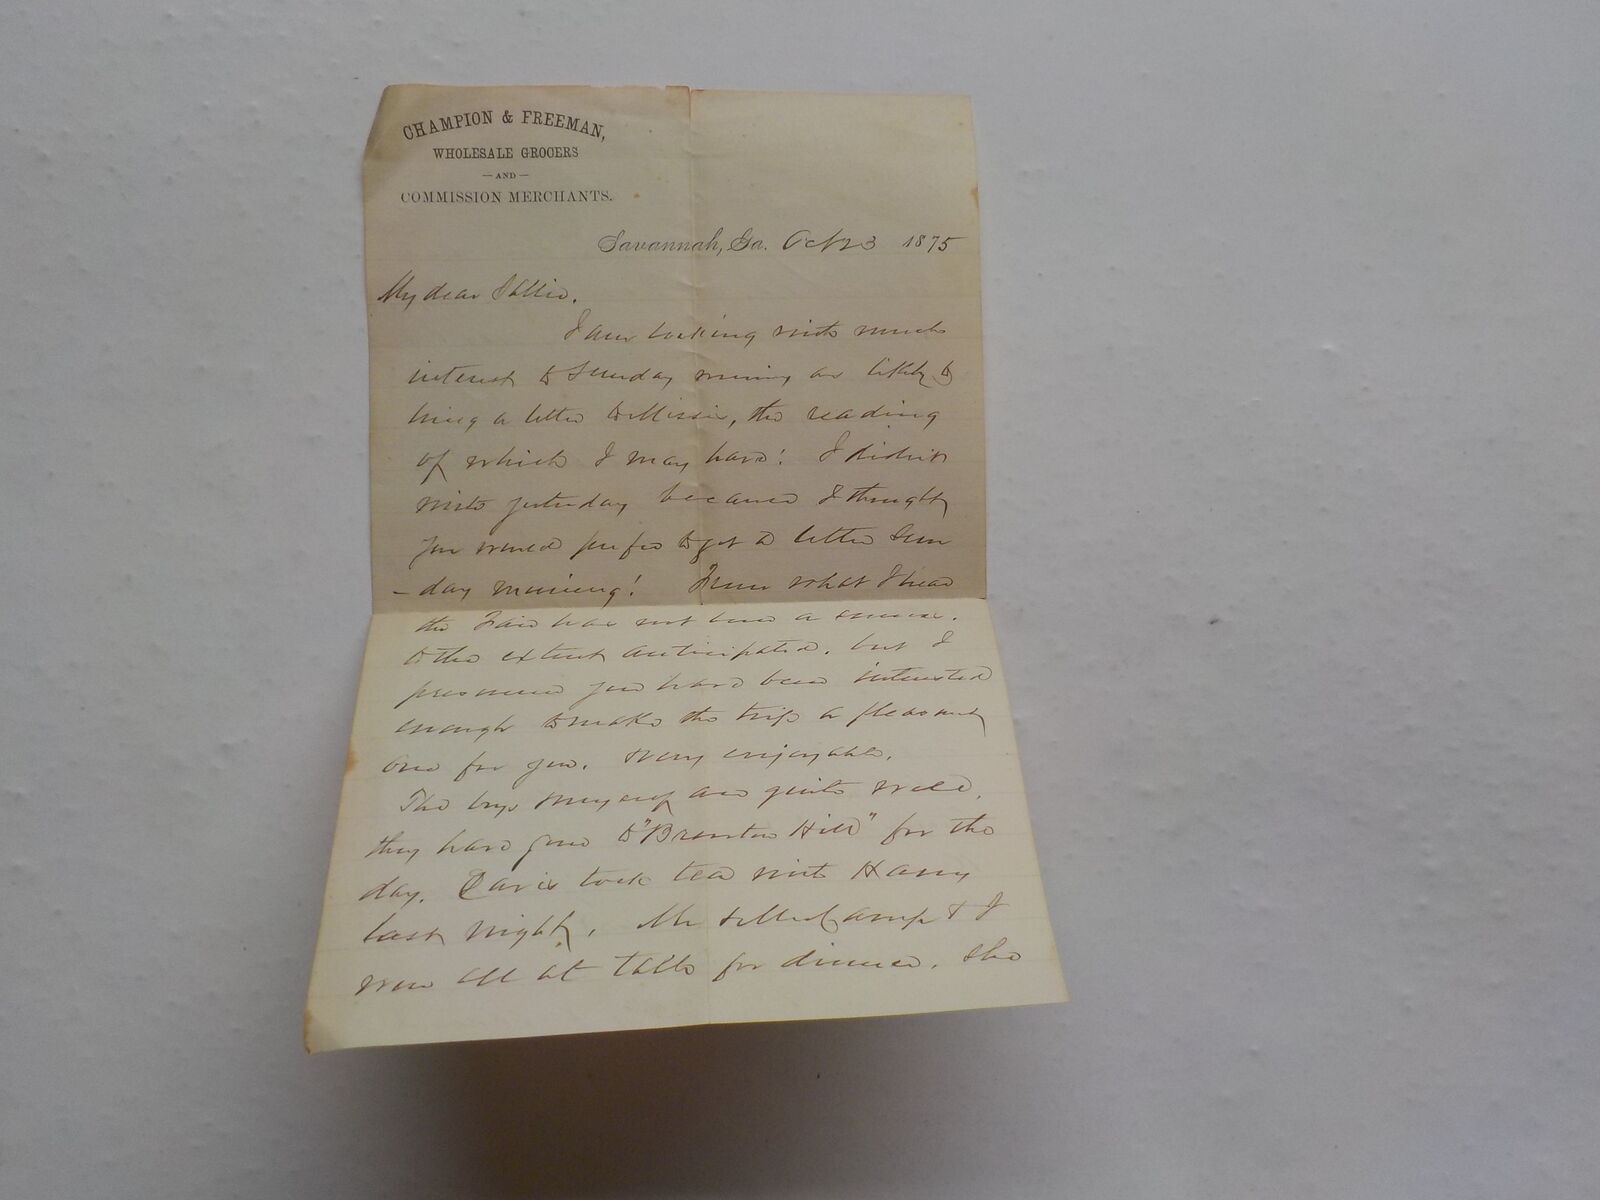 CHAMPION & FREEMAN,
WHOLESALE GROCERS
— AND —
COMMISSION MERCHANTS.
Savannah, Ga. Oct 23 1875
My dear Sallie.
I am looking with much
interest to Sunday morning as likely to
bring a letter to Missie, the reading
of which I may have! I didn't
write yesterday because I thought
you would prefer to get a letter Sun
- day morning! From what I hear
the Fair has not been a success.
to the extent anticipated. but I
presume you have been interested
enough to make the trip a pleasant
one for you. & very enjoyable.
The boys & myself are quite well.
they have gone to " Hill" for the
day. took tea with Harry
last night. Mr & Camp & I
were all at table for dinner. She